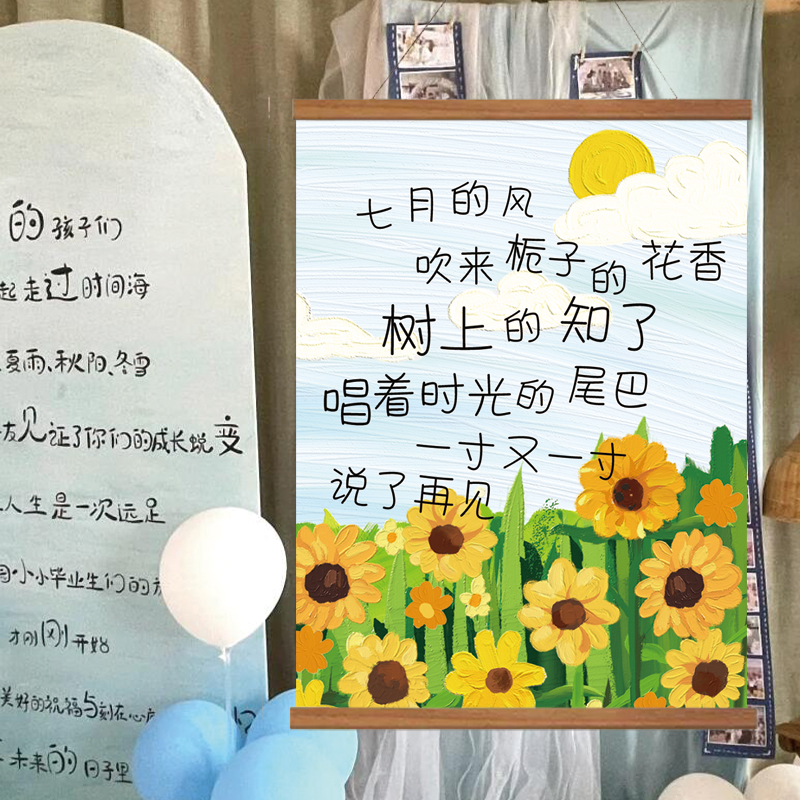 的孩子们
起走过时间海
夏雨、秋阳、冬雪
友见证了你们的成长蜕变
人生是一次远足
小小毕业生们的
才刚刚开始
美好的祝福与刻在心
未来的日子里
七月的风
吹来栀子的花香
树上的知了
唱着时光的尾巴
一寸又一寸
说了再见